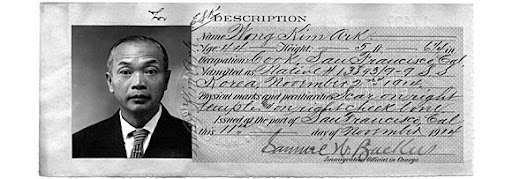 DESCRIPTION
Name Wong Kim Ark
Age 44 Height, 5 ft. in
Occupation Cook, San Francisco Cal
Admitted as Native #
Korea November 2nd 1914
Physical marks and peculiarities Scar on right
temple on right cheek bone
Issued at the port of San Francisco Cal
this 11th day of November 1914
Immigration Official in Charge.